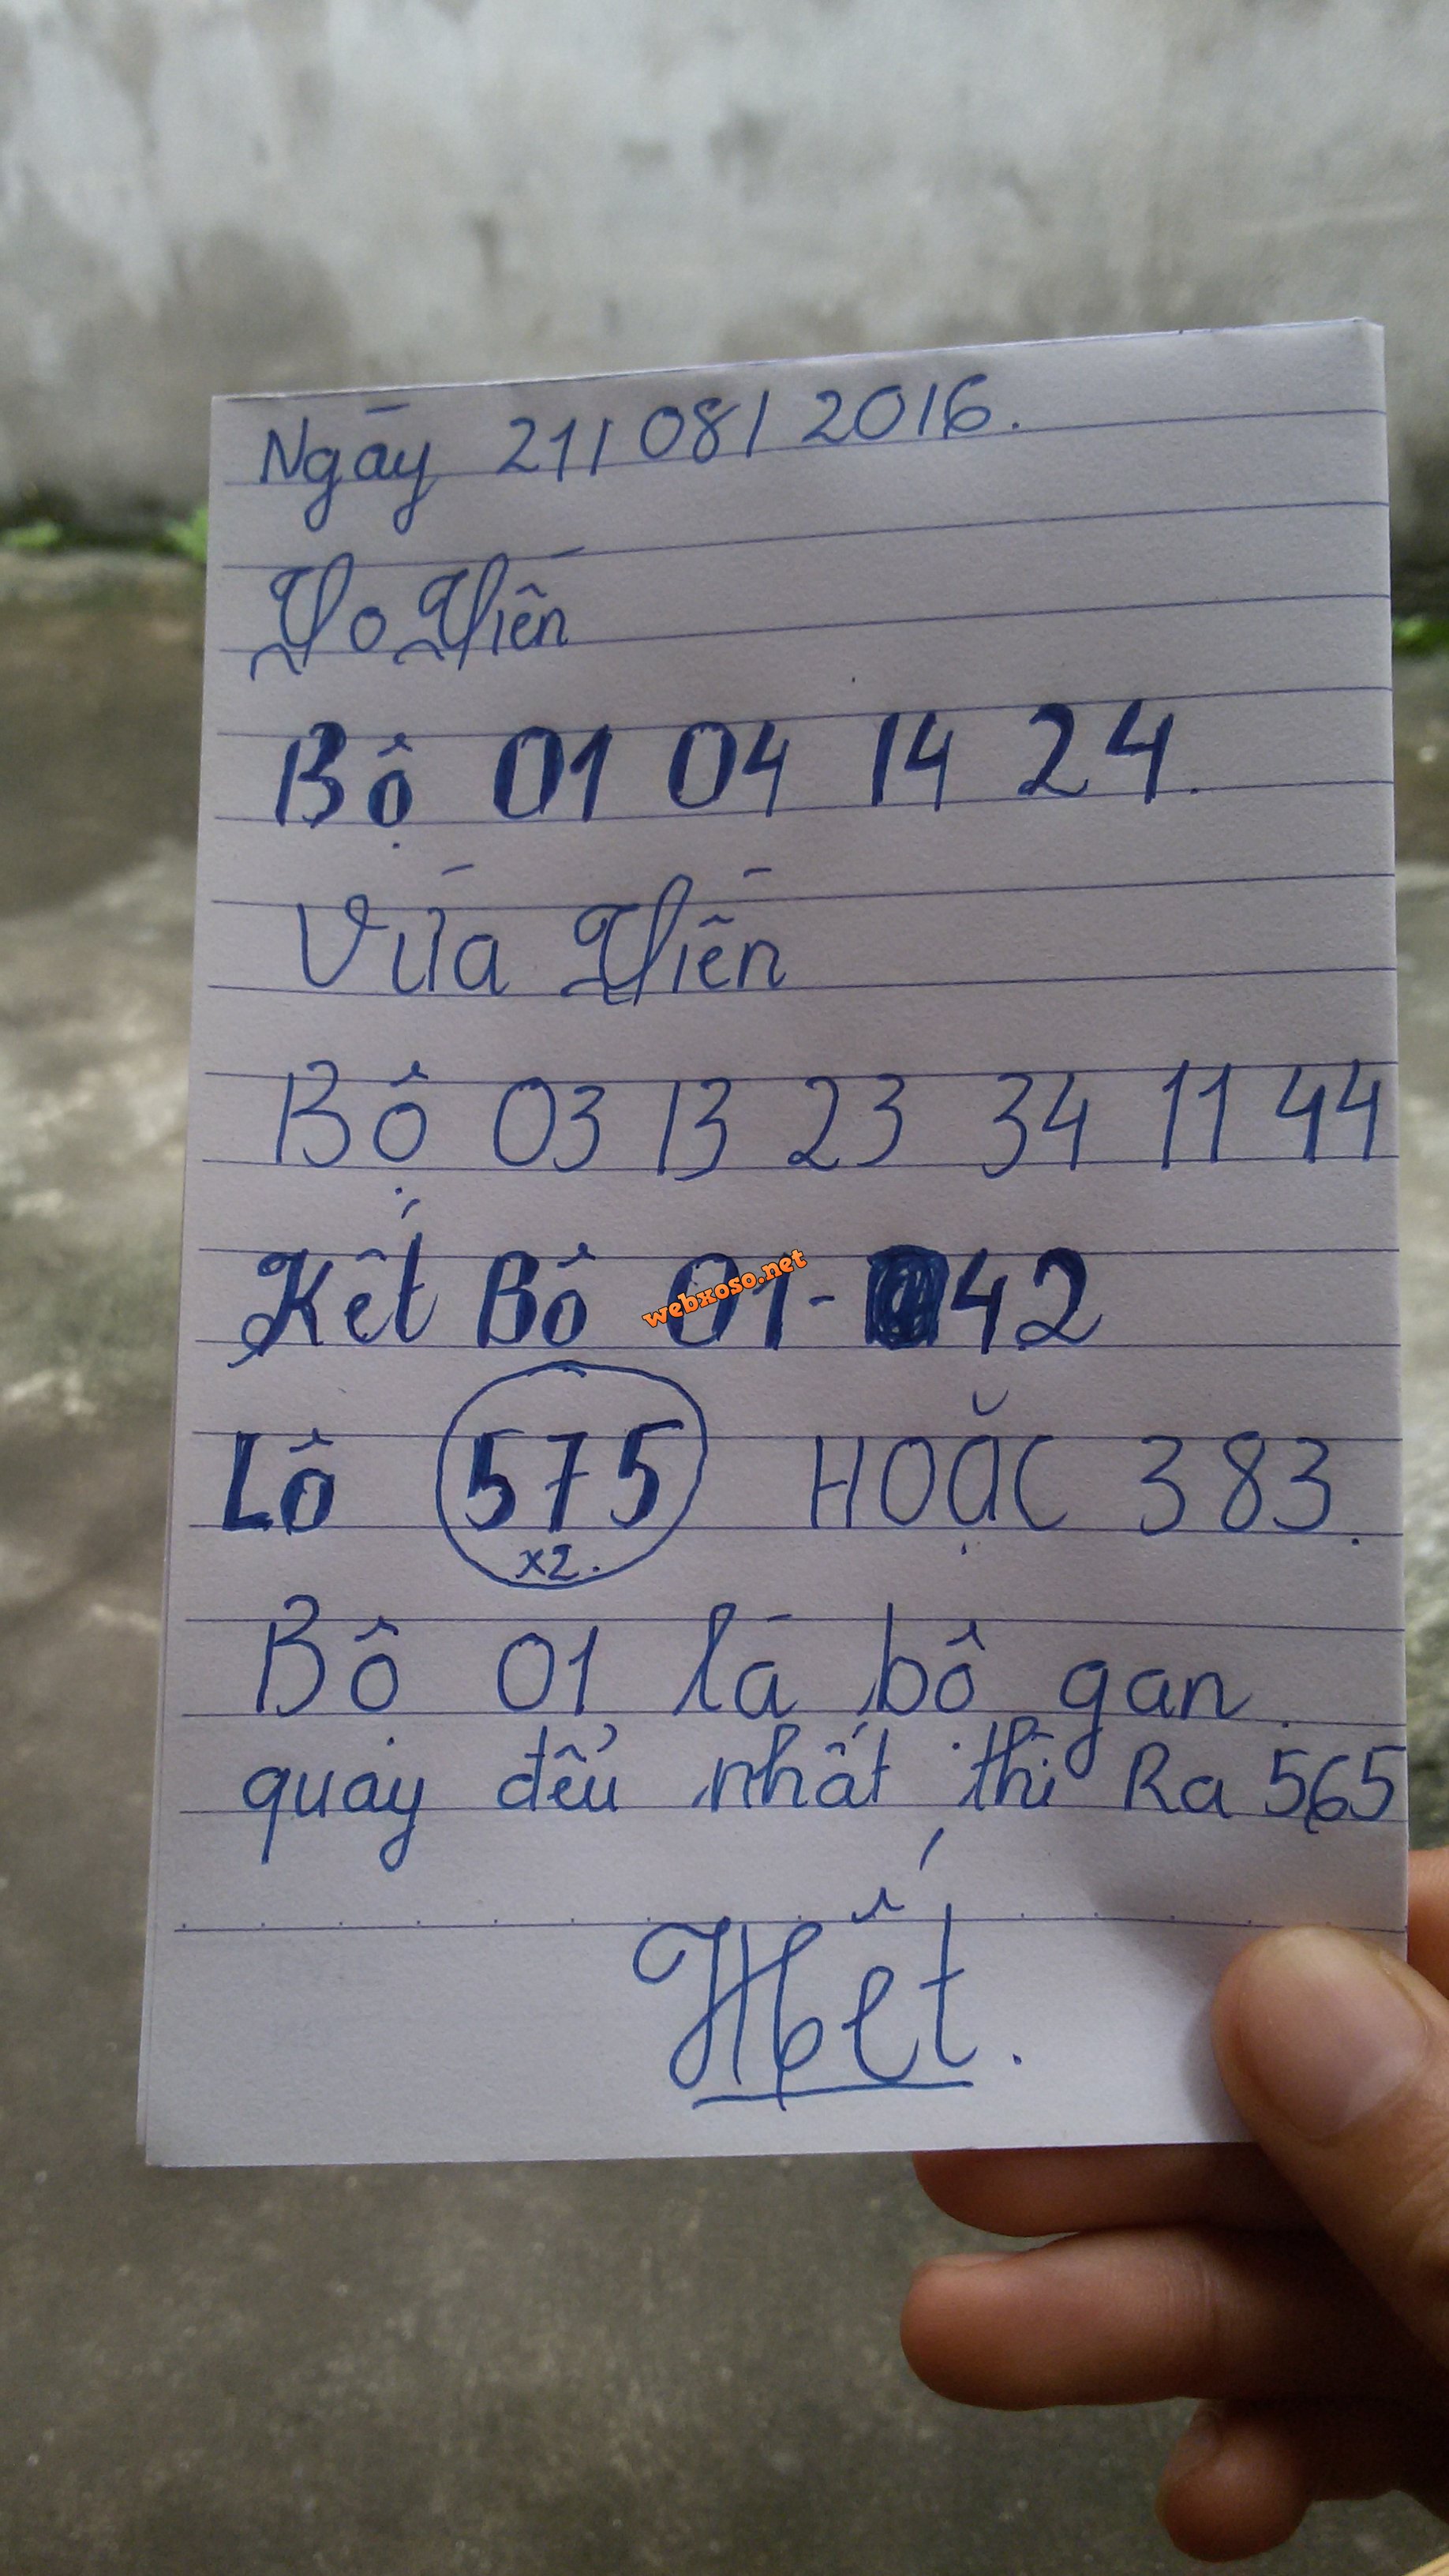 Ngày 21/08/2016.
To Tiền
Bộ 01 04 14 24.
Vừa Tiền
Bộ 03 13 23 34 11 44
Kết Bộ 01-42
webxoso.net
Lô 575 HOẶC 383.
x2.
Bộ 01 là bộ gan.
quay đểu nhất thì Ra 565
Hết.